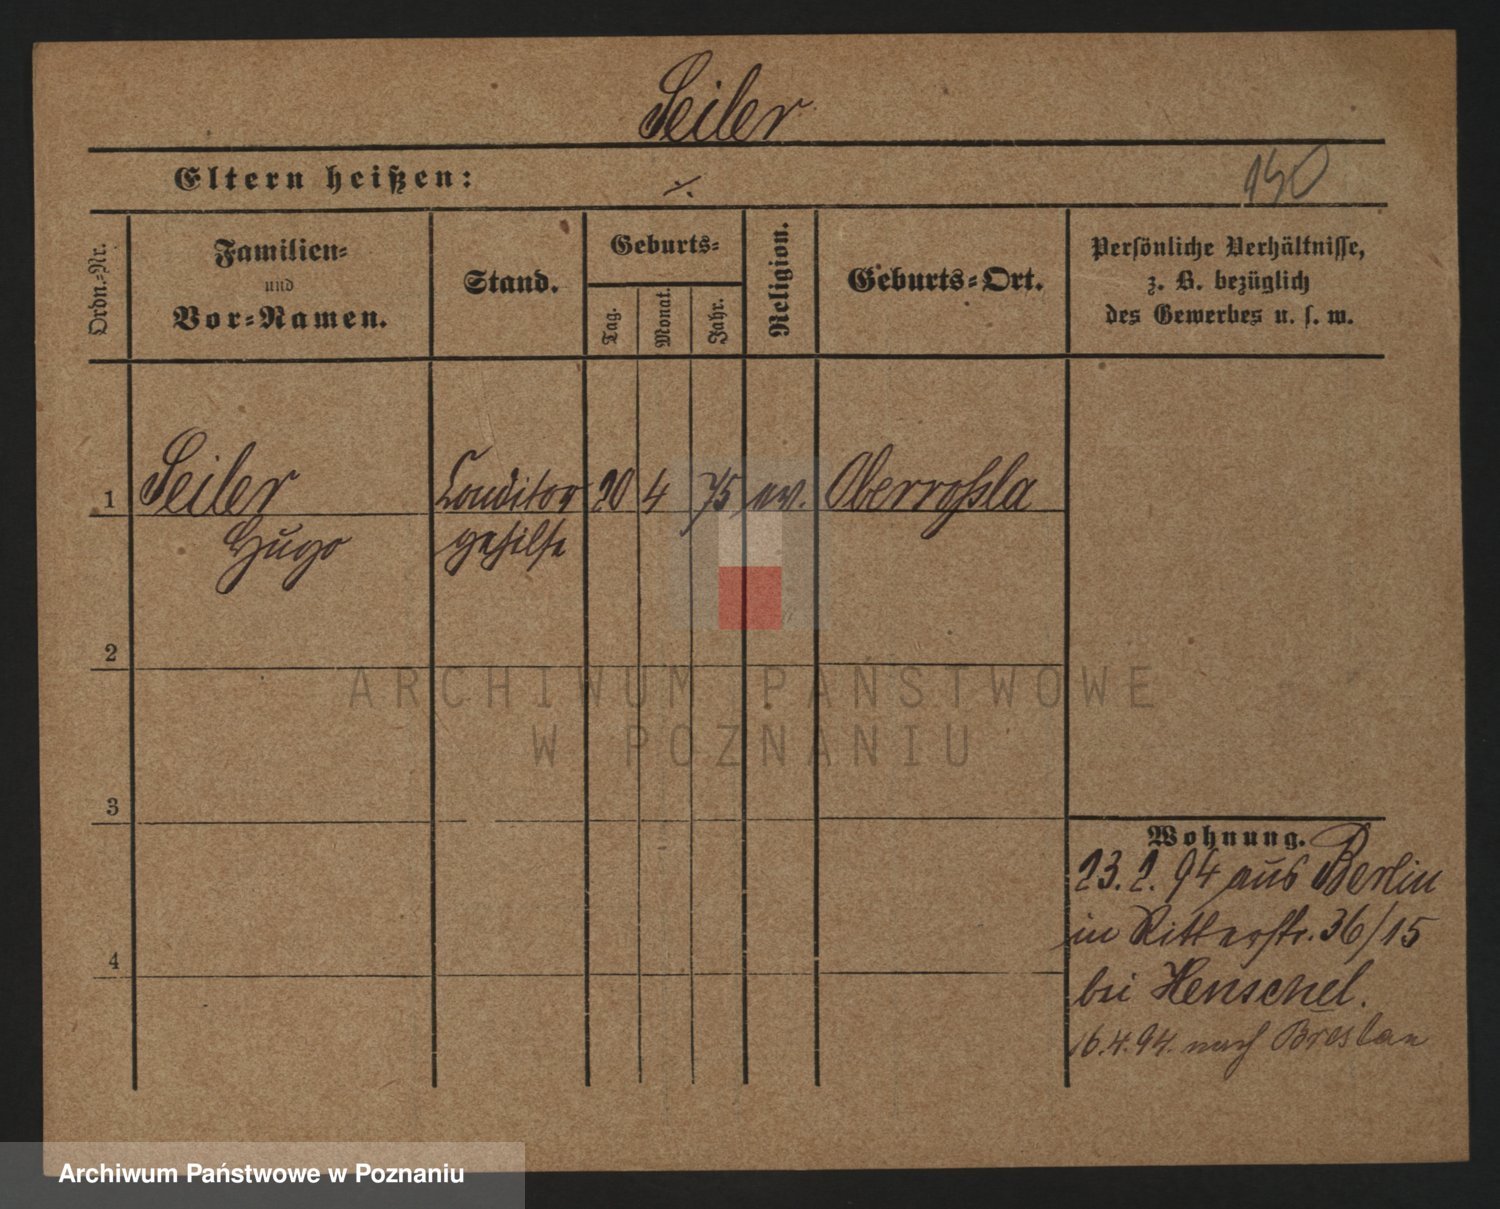 Seiler
Eltern heißen: ⁒ 130
Ordn.-Nr.
Familien-
und
Vor-Namen.
Stand.
Geburts-
Tag.
Monat.
Jahr.
Religion.
Geburts-Ort.
Persönliche Verhältnisse,
z. B. bezüglich
des Gewerbes u. s. w.
1 Seiler Conditor 20 4 75 ev. Oberroßla
Hugo gehilfe
2
ARCHIWUM PAŃSTWOWE
W POZNANIU
3
Wohnung.
23. 2. 94 aus Berlin
in Ritterstr. 36/15
4
bei Henschel.
16.4.94. nach Breslau
Archiwum Państwowe w Poznaniu